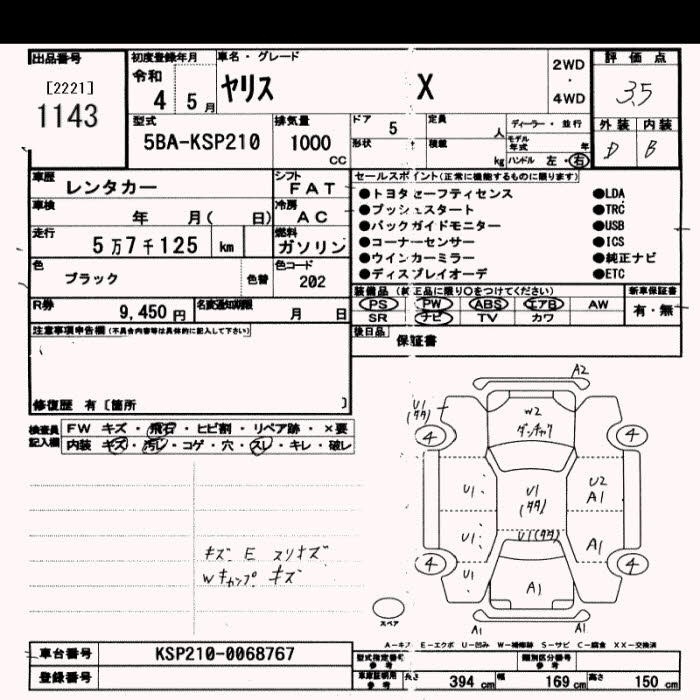 出品番号 初度登録年月 車名・グレード 評価点
[2221] 令和 2WD
1143 4 5月 ヤリス X ・ 4WD 3.5
型式 排気量 ドア 5 定員 人 ディーラー・並行 外装 内装
5BA-KSP210 1000 cc 形状 積載 kg モデル年式 年 ハンドル 左・右 D B
車歴 レンタカー シフト FAT セールスポイント(正常に機能するものに限ります)
車検 年 月( 日) 冷房 AC
●トヨタセーフティセンス ●LDA
●プッシュスタート ●TRC
走行 5万7千125 km 燃料 ガソリン
●バックガイドモニター ●USB
●コーナーセンサー ●ICS
色 ブラック 色替 色コード 202
●ウインカーミラー ●純正ナビ
●ディスプレイオーデ ●ETC
R券 9,450円 名変通知期限 月 日
装備品(純正品に限り○をつけてください) 新車保証書
PS PW ABS エアB AW 有・無
SR ナビ TV カワ
注意事項申告欄(不具合内容等は具体的に記入して下さい)
後日品 保証書
修復歴 有〔箇所 〕
検査員記入欄 FW キズ・飛石・ヒビ割・リペア跡・×要
内装 キズ・汚レ・コゲ・穴・スレ・キレ・破レ
A2
U1
(タタ)
W2
4 4
U1 U1 U2
(タタ) A1
U1 U1(タタ) A1
4 4
U1 A1
A1 A1
キズ E スリキズ
Wキャップ キズ
スペア
A-キズ E-エクボ U-凹み W-補修跡 S-サビ C-腐食 XX-交換済
車台番号 KSP210-0068767 型式指定番号 参考 類別区分番号 参考
登録番号 車庫証明用 参考 長さ 394 cm 幅 169 cm 高さ 150 cm